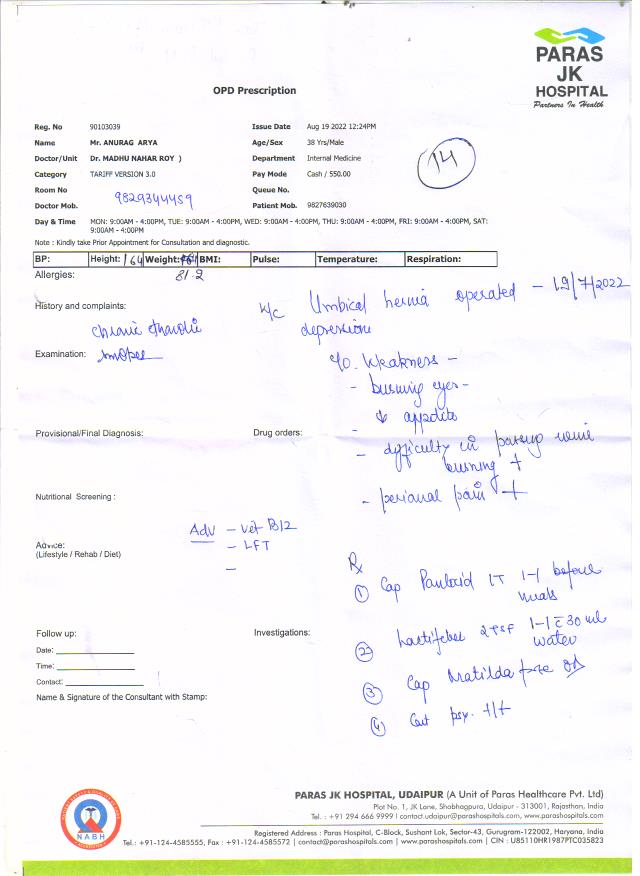 PARAS
JK
HOSPITAL
Partners In Health
OPD Prescription
Reg. No 90103039 Issue Date Aug 19 2022 12:24PM
Name Mr. ANURAG ARYA Age/Sex 38 Yrs/Male
Doctor/Unit Dr. MADHU NAHAR ROY ) Department Internal Medicine
Category TARIFF VERSION 3.0 Pay Mode Cash / 550.00
Room No Queue No.
Doctor Mob. 9829344459 Patient Mob. 9827639030
14
Day & Time MON: 9:00AM - 4:00PM, TUE: 9:00AM - 4:00PM, WED: 9:00AM - 4:00PM, THU: 9:00AM - 4:00PM, FRI: 9:00AM - 4:00PM, SAT:
9:00AM - 4:00PM
Note : Kindly take Prior Appointment for Consultation and diagnostic.
BP: Height: 164 Weight: BMI: Pulse: Temperature: Respiration:
Allergies: 81.2
History and complaints: K/C Umbical hernia operated - 19/7/2022
depression
Chronic
Examination: smoker
c/o. Weakness -
- burning eyes -
- ↓ appetite
Provisional/Final Diagnosis: Drug orders:
- difficulty in passing urine
burning +
Nutritional Screening :
- perianal pain +
Adv - vit B12
Advice: - LFT
(Lifestyle / Rehab / Diet) -
Rx
① Cap Pantocid IT 1-1 before
meals
Follow up: Investigations:
② 2 tsf 1-1 c̄ 30 ml
water
Date:
Time:
③ Cap Matilda forte OD
Contact:
Name & Signature of the Consultant with Stamp:
④ Cont psy. t/t
NABH
PARAS JK HOSPITAL, UDAIPUR (A Unit of Paras Healthcare Pvt. Ltd)
Plot No. 1, JK Lane, Shobhagpura, Udaipur - 313001, Rajasthan, India
Tel. : +91 294 666 9999 | contact.udaipur@parashospitals.com, www.parashospitals.com
Registered Address : Paras Hospital, C-Block, Sushant Lok, Sector-43, Gurugram-122002, Haryana, India
Tel.: +91-124-4585555, Fax : +91-124-4585572 | contact@parashospitals.com | www.parashospitals.com | CIN : U85110HR1987PTC035823